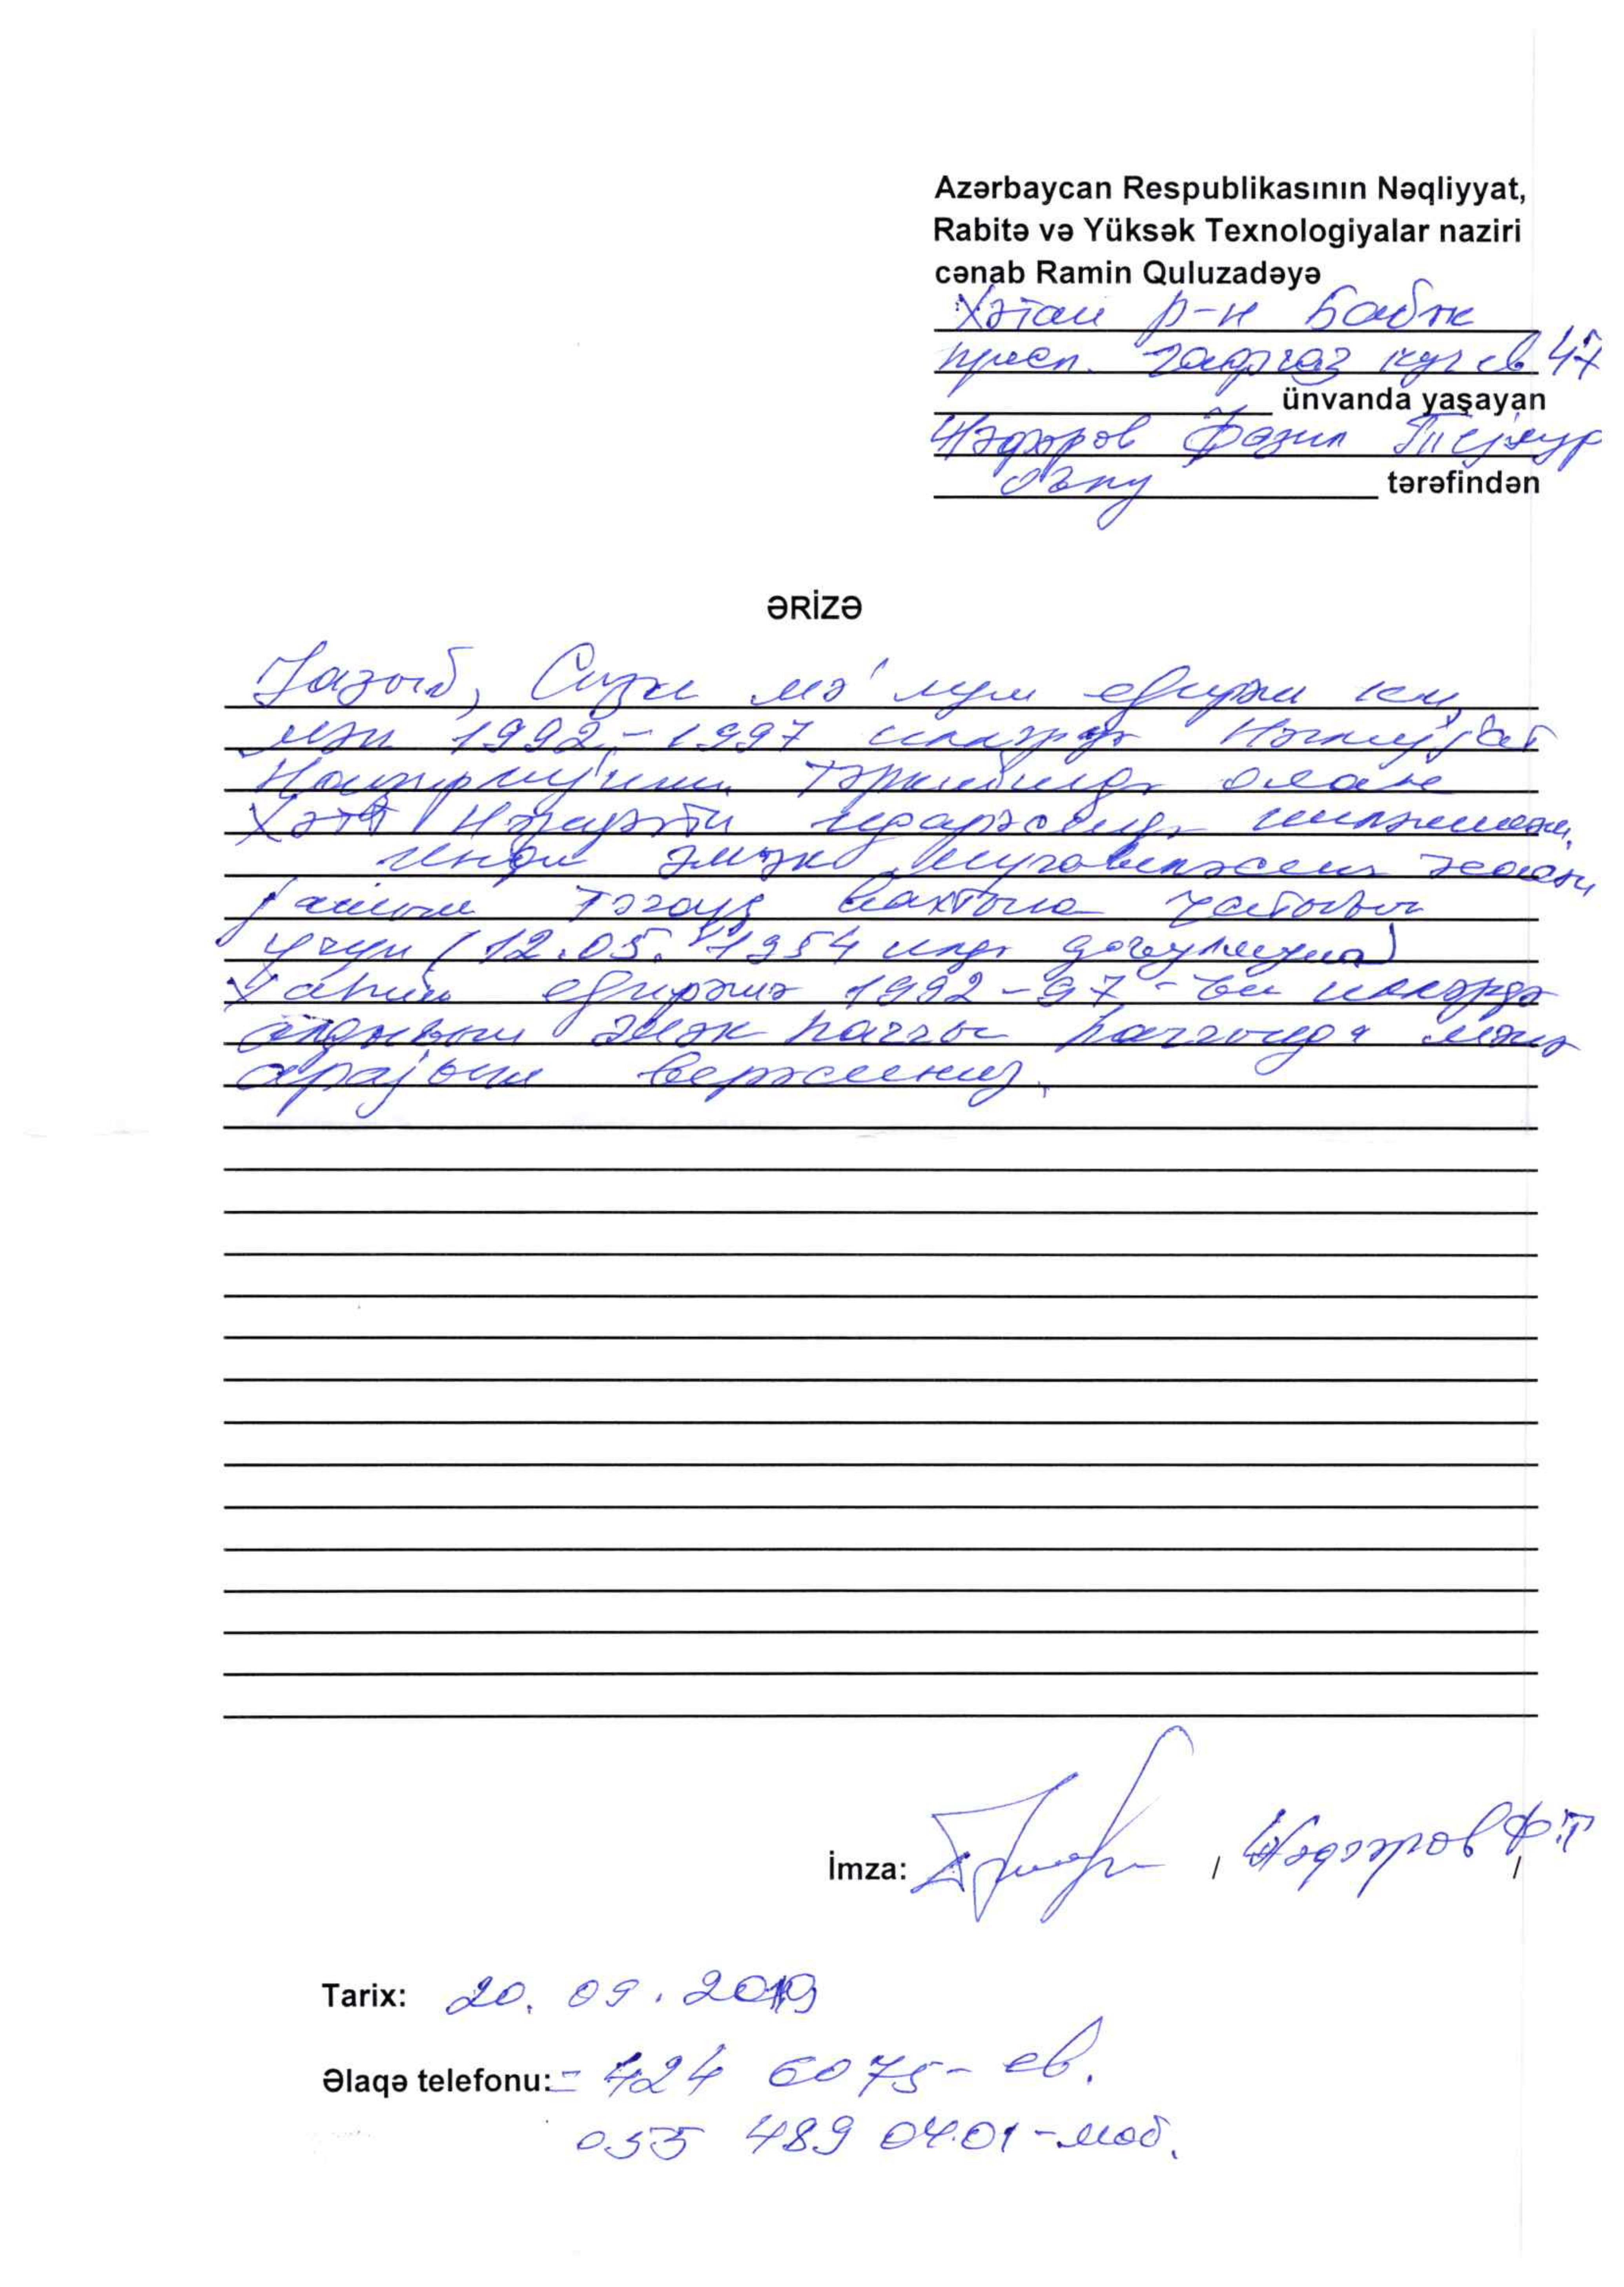 Azərbaycan Respublikasının Nəqliyyat,
Rabitə və Yüksək Texnologiyalar naziri
cənab Ramin Quluzadəyə
Хәтаи р-н Бабәк
просп. ев 47
ünvanda yaşayan
Фазил Тејмур
оғлу tərəfindən
ƏRİZƏ
Јазыб, Сизә мә'лум едирәм ки,
мән 1992-1997 илләрдә Нәглијјат
Назирлијинин тәркибиндә олан
Хәтт Нәзарәти идарәсиндә ишләмишәм.
Инди әмәк
јашым тәгауд вахтына чатдығы
үчүн (12.05.1954 илдә доғулмушам)
Хаһиш едирәм 1992-97-ви илләрдә
алдығым әмәк һаггы һаггында мәнә
арајыш верәсиниз.
İmza: / Ф.Т /
Tarix: 20.09.2019
Əlaqə telefonu: = 424 6075- ев.
055 489 0401 - моб.